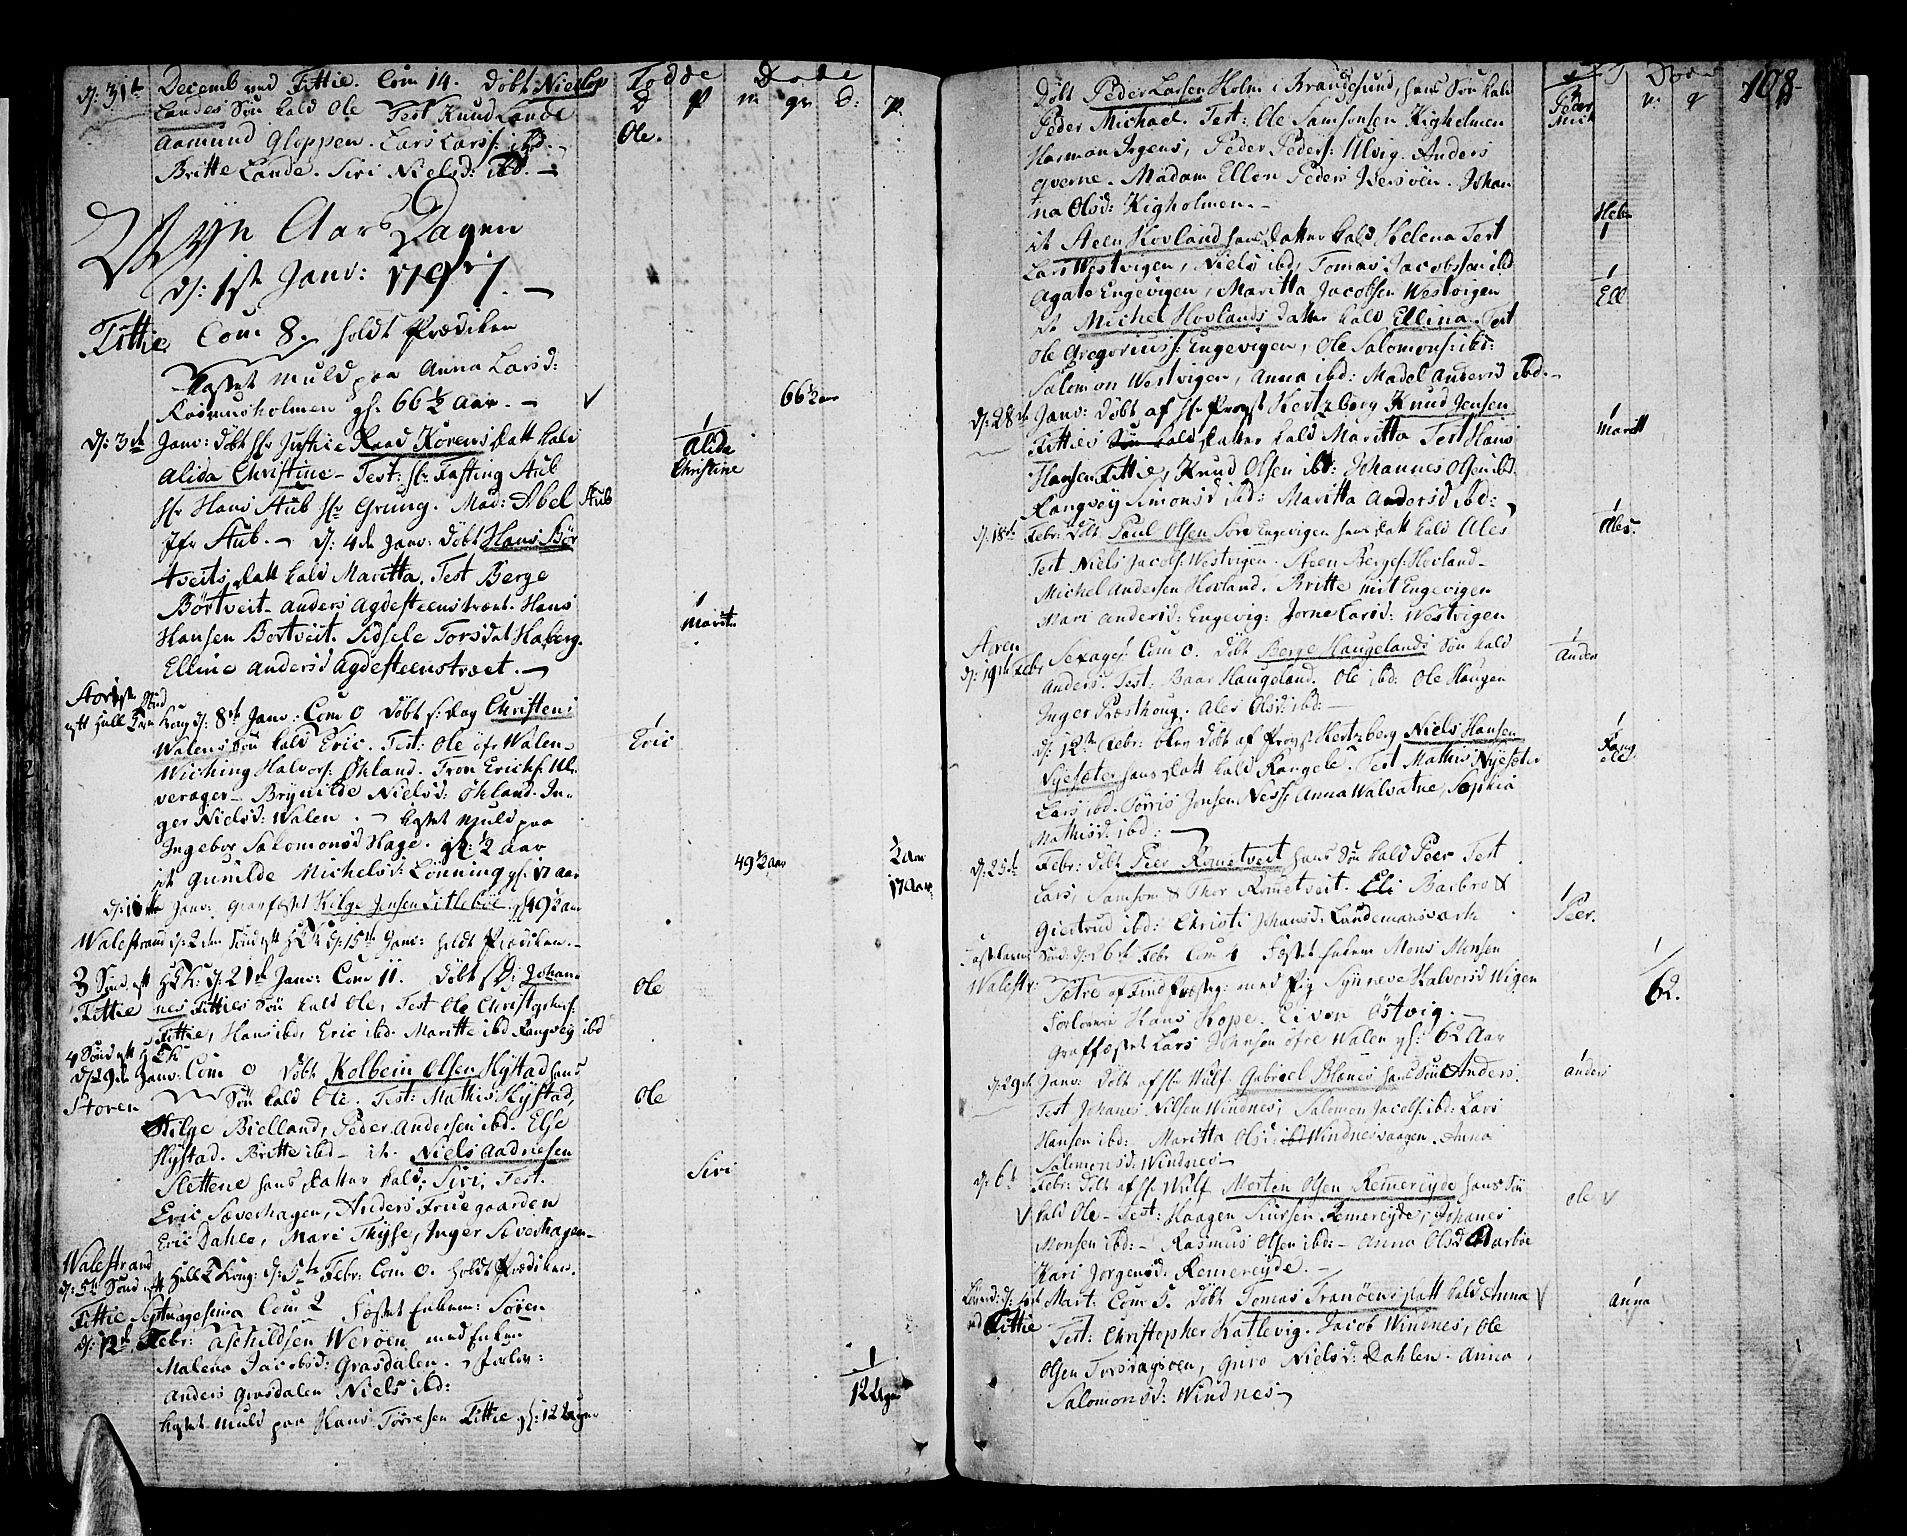 d: 31te Decemb ved Fittie. Com 14. Döbt Niels
Landes Sön kald Ole Test Knud Lande
Aamund Gloppen. Lars Larss: ibd.
Britte Lande. Siri Nielsd: ibd. —
Födde Döde
D P m qv D: P.
Ole.
Nyn Aars Dagen
d: 1ste Janv: 1797. —
Fittie Com 8. holdt Prædiken
Kastet Muld paa Anna Larsd:
Rasmusholmen gl: 66½ Aar. —
66½ aar
d: 3de Janv: döbt Hr Justitie Raad Korens Datt kald
Alida Christine — Test: Hr Fasting Aub
Hr Hans Aub Hr Grung. Mad: Abel Aub
Jfr Aub. — d: 4de Janv: Döbt Hans Bör
tveits Datt kald Maritta. Test Berge
Börtveit — Anders Agdesteenstræet. Hans
Hansen Börtveit. Sidsele Torsdat Haberg.
Elline Andersd Agdesteenstræet. —
1
Alida
Christine
1
Marit
Storen
d: 8de Janv: Com 0 Döbt s: dag Christens
Walens Sön kald Eric. Test: Ole öfre Walen
Wiching Halvors: Ökland. Tron Ericks: Ul
verager — Brynilde Nielsd: Ökland. In
ger Nielsd: Walen. — Kastet Muld paa
Ingebor Salomonsd Hage. gl: ½ Aar
it Gunilde Michelsd: Lönning gl: 17 Aar
1
Eric
½ Aar
17 Aar
d: 11te Janv: Graffæstet Helge Jensen Litleböe gl 49½ aar
49½ aar
Walestrand d: 2den Sönd eftt H 3 K d: 15de Janv: holdt Prædiken. —
3 Sönd eftt H 3 K: d: 21de Janv: Com 11. Döbt Johan
Fittie nes Fitties Sön kald Ole, Test Ole Christophers:
Fittie, Hans ibd, Eric ibd. Maritte ibd Rangveig ibd
Ole
4 Sönd eftt H 3 K
d: 29de Janv: Com 0 Döbt Kolbein Olsen Hystad hans
Storen Sön kald Ole. Test: Mathis Hystad,
Helge Bielland, Peder Andersen ibd. Else
Hystad. Britte ibd — it. Niels Aadnesen
Slettene hans Datter kald, Siri, Test.
Eric Sæverhagen, Anders Fruegaarden
Eric Dahle, Mari Thyse, Inger Sæverhagen —
Ole
Siri
Walestrand
d: 5te Sönd eftt Hell 3 Kong: d: 5te Febr: Com 0. holdt Prædiken.
Fittie Septuagesima Com 2 Fæstet Enkem: Sören
d: 12te Febr: Aschildsen Weröen med Enken
Malena Jacobsd: Grasdalen. Forlov:
Anders Grasdalen Niels ibd:
Kastet Muld paa Hans Törresen Fittie gl: 12 Uger
1
12 Uger
108
Döbt Peder Larsen Holm i Brandesund, hans Sön kald
Peder Michael. Test: Ole Samsonsen Kigholmen
Harmon Irgens, Peder Peders: Ulvig. Anders
qverne. Madam Ellen Peders Isersöen. Johan
na Olsd: Kigholmen. —
Peder
Mich
it Steen Hovland hans Datter kald Helena Test
Lars Westvigen, Niels ibd, Tomas Jacobsson ibd
Agate Engevigen, Maritta Jacobsen Westvigen
Hele
1
it Michel Hovlands Datter kald Ellina. Test
Ole Gregoriuss: Engevigen, Ole Salomons: ibd:
Salomon Westvigen, Anna ibd: Madel Andersd ibd. —
1
Ell
d: 28de Janv: Döbt af Hr Provst Hertzberg Knud Jensen
Fitties Sön kald Datter kald Maritta Test Hans
Hansen Fittie, Knud Olsen ibd: Johannes Olsen ibd.
Rangvey Simonsd ibd: Maritta Andersd ibd:
1
Maritt
d: 18de Febr: Döbt Paul Olsen Sore Engevigen hans Datt kald Ales
Test Niels Jacobs: Westvigen. Steen Berges: Hovland —
Michel Andersen Hovland. Britte mit Engevigen
Mari Andersd: Engevig: Jorne Larsd: Westvigen
1
Ales.
Storen
d: 19de Febr Sexages: Com 0. Döbt Berge Haugelands Sön kald
Anders. Test: Baar Haugeland. Ole ibd: Ole Haugen
Inger Præsthoug. Ales Olsd: ibd: —
1
Anders
d: 12te Febr: blev döbt af Provst Hertzberg Niels Hansen
Nysæter hans Datt kald Rangele. Test Mathis Nysæter
Lars ibd. Törris Jensen Ness: Anna Walvatne, Sophia
Mathisd: ibd:
1
Rang
ele.
d: 25de Febr: Döbt Peer Rometveit hans Sön kald Peer Test
Lars, Samson & Ther Rometveit. Eli Barbro &
Giertrud ibd: Christi Johansd. Lundemansværk
1
Peer.
Fastelavns Sönd: d: 26de Febr Com 4 Fæstet Enkem Mons Monsen
Walestr: Sætre af Find Præstg: med Pig Synneve Halvorsd Wigen
Forlovere Hans Hope. Eiven Östvig. —
Graffæstet Lars Johnsön öfre Walen gl: 62 Aar
1
62.
d: 29de Janv: Döbt af Hr Wulf. Gabriel Blænes hans Sön Anders.
Test Johanes Nilsen Windnes; Salomon Jacobs: ibd: Lars
Hansen ibd: Maritta Olsd: ibd Windnesvaagen. Anna
Salomonsd: Windnes —
1
Anders
d: 6te Febr: Döbt af Hr Wulf Morten Olsen Remereyde hans Sön
kald Ole — Test: Haagen Siursen Remereyde, Johanes
Monsen ibd: — Rasmus Olsen ibd: — Anna Olsd Aarböe
Kari Jorgensd. Remereyde. —
Ole
Mart. Com 5. Döbt Tomas Tranöens Datt kald Anna
ved Fittie Test: Christopher Katlevig. Jacob Windnes, Ole
Olsen Torsdagsöen, Guro Nielsd: Dahlen. Anna
Salomonsd: Windnes
1
Anna